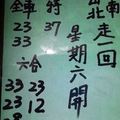 南北走一回
星期六開
全車 特
23 37
33
六合
39 23
33 12
23 8